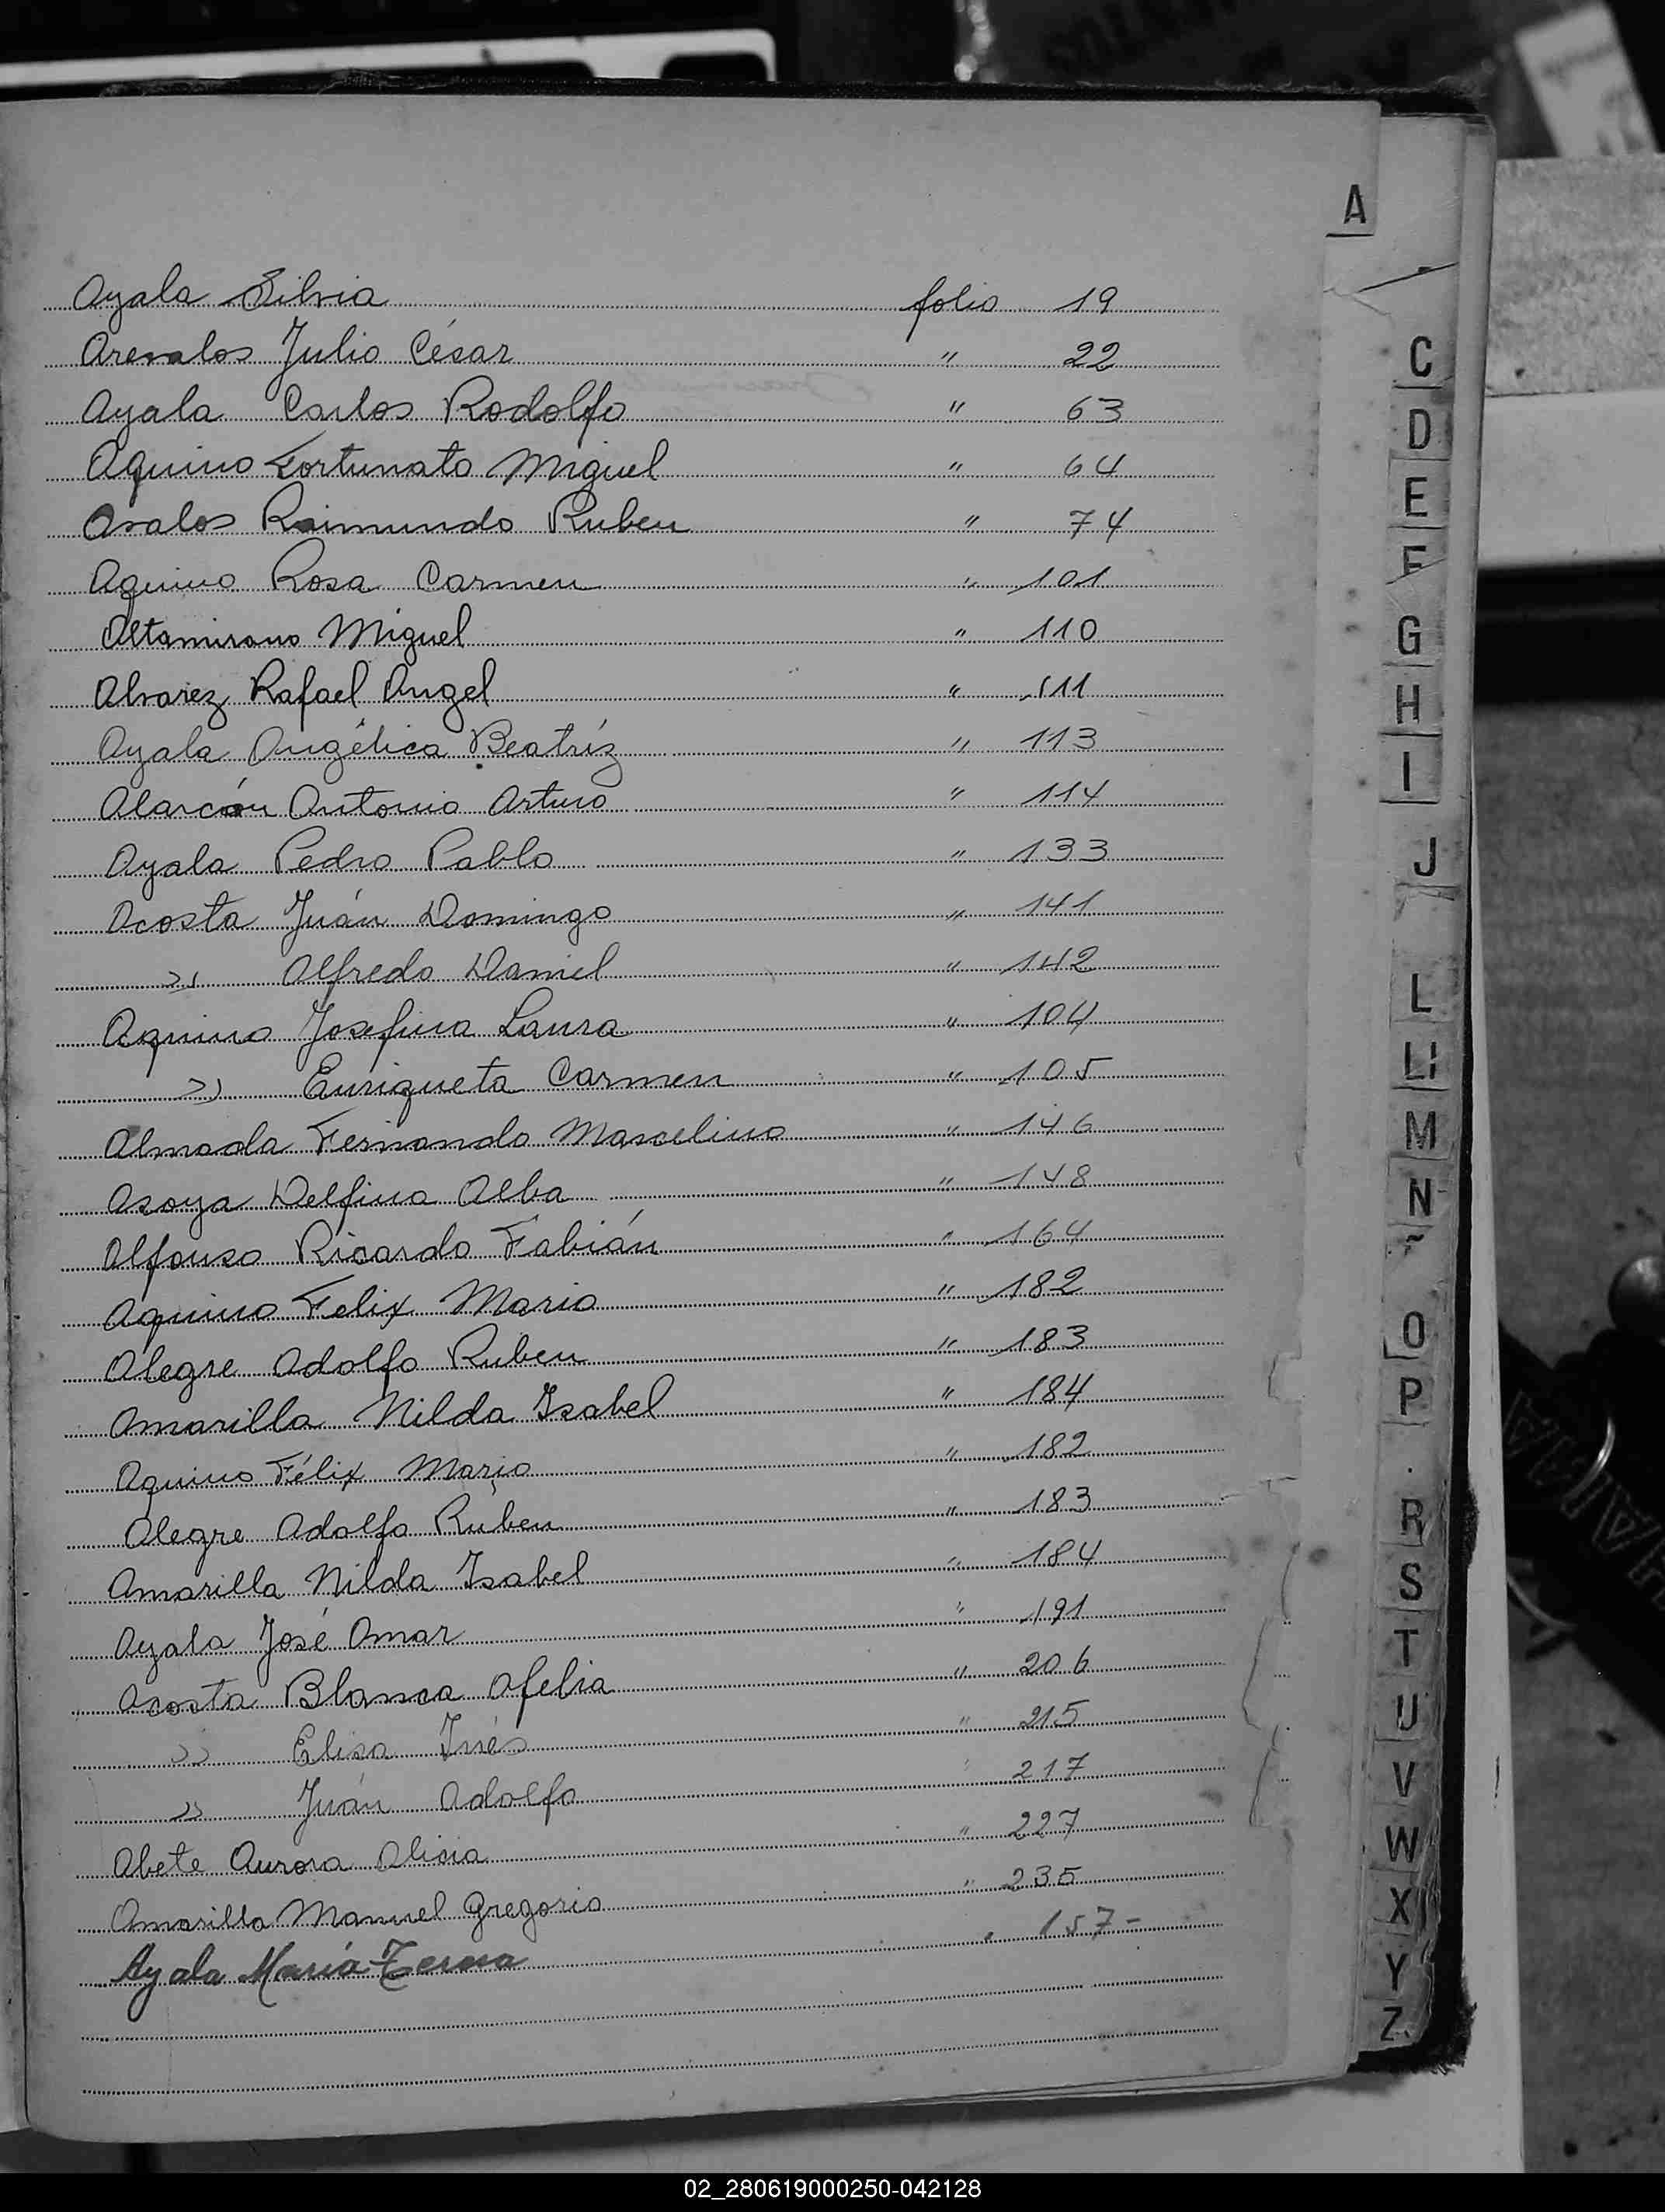 A
Ayala Silvia folio 19
Arevalos Julio César " 22
Ayala Carlos Rodolfo " 63
Aquino Fortunato Miguel " 64
Avalos Raimundo Ruben " 74
Aquino Rosa Carmen " 101
Altamirano Miguel " 110
Alvarez Rafael Angel " 111
Ayala Angélica Beatríz " 113
Alarcón Antonio Arturo " 114
Ayala Pedro Pablo " 133
Acosta Juán Domingo " 141
" Alfredo Daniel " 142
Aquino Josefina Laura " 104
" Enriqueta Carmen " 105
Almada Fernando Marcelino " 146
Asoya Delfina Alba " 148
Alfonso Ricardo Fabián " 164
Aquino Felix Mario " 182
Alegre Adolfo Ruben " 183
Amarilla Nilda Isabel " 184
Aquino Félix Mario " 182
Alegre Adolfo Ruben " 183
Amarilla Nilda Isabel " 184
Ayala José Omar " 191
Acosta Blanca Ofelia " 206
" Elisa Inés " 215
" Juán Adolfo " 217
Abete Aurora Alicia " 227
Amarilla Manuel Gregorio " 235
Ayala María " 157-
C
D
E
F
G
H
I
J
L
Ll
M
N
Ñ
O
P
R
S
T
U
V
W
X
Y
Z
02_280619000250-042128